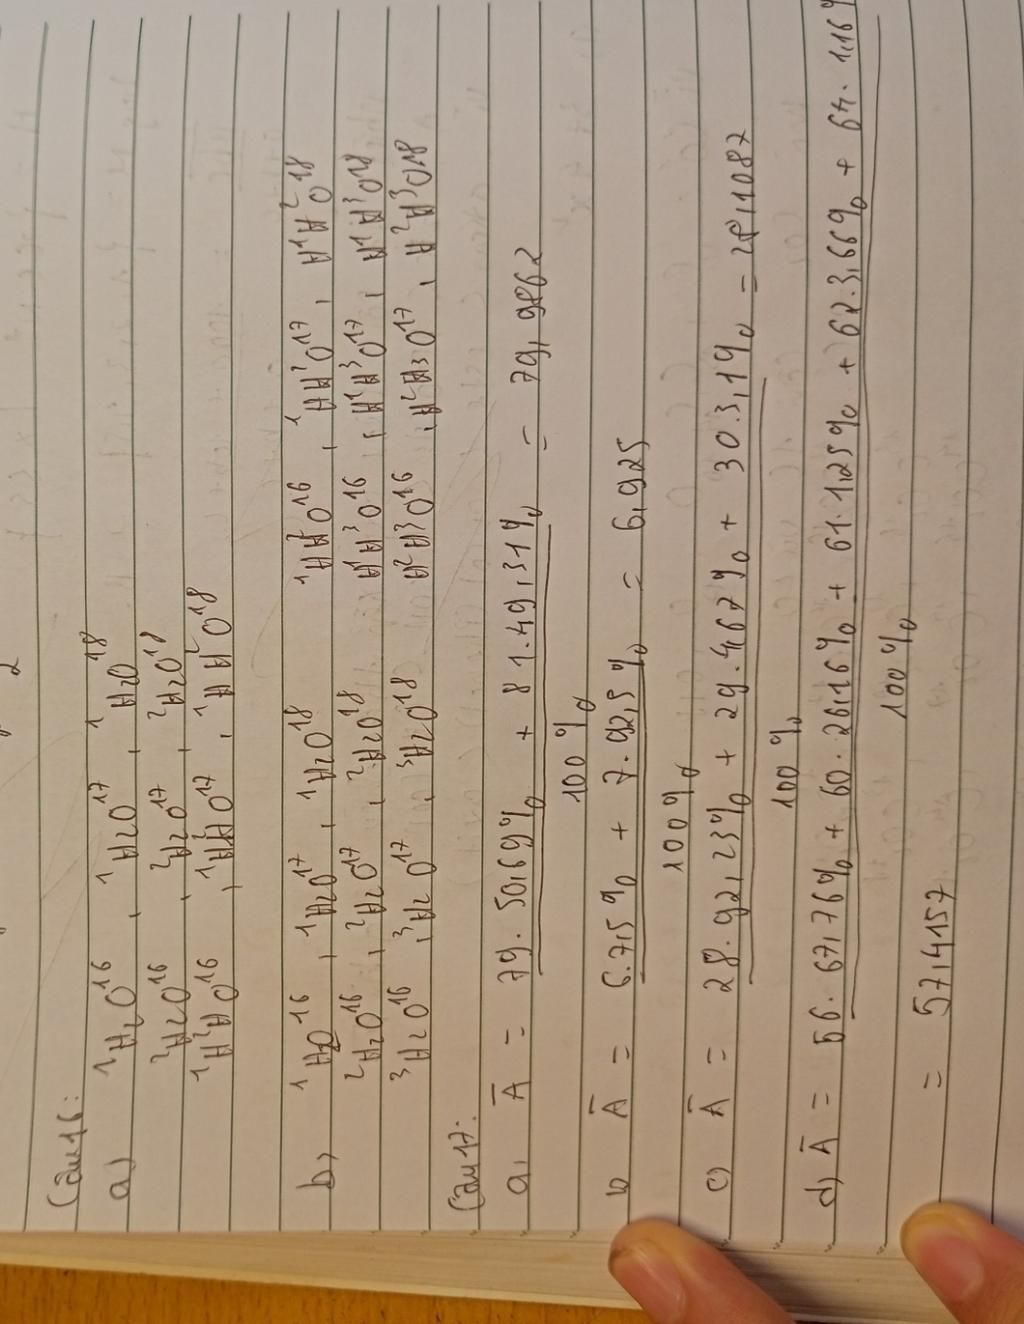 Câu 16:
a) ¹H₂O¹⁶, ¹H₂O¹⁷, ¹H₂O¹⁸
²H₂O¹⁶, ²H₂O¹⁷, ²H₂O¹⁸
¹H²HO¹⁶, ¹H²HO¹⁷, ¹H²HO¹⁸
b, ¹H₂O¹⁶, ¹H₂O¹⁷, ¹H₂O¹⁸ ¹H²HO¹⁶, ¹HH²O¹⁷, H¹H²O¹⁸
²H₂O¹⁶, ²H₂O¹⁷, ²H₂O¹⁸ H¹H³O¹⁶, H¹H³O¹⁷, H¹H³O¹⁸
³H₂O¹⁶, ³H₂O¹⁷, ³H₂O¹⁸ H²H³O¹⁶, H²H³O¹⁷, H²H³O¹⁸
Câu 17:
a, Ā = 79.50,69% + 81.49,31% = 79,9862
100%
b Ā = 6.7,5% + 7.92,5% = 6,925
100%
c) Ā = 28.92,23% + 29.4,67% + 30.3,1% = 28,1087
100%
d) Ā = 56.67,76% + 60.26,16% + 61.1,25% + 62.3,66% + 64.1,16%
100%
= 57,4157